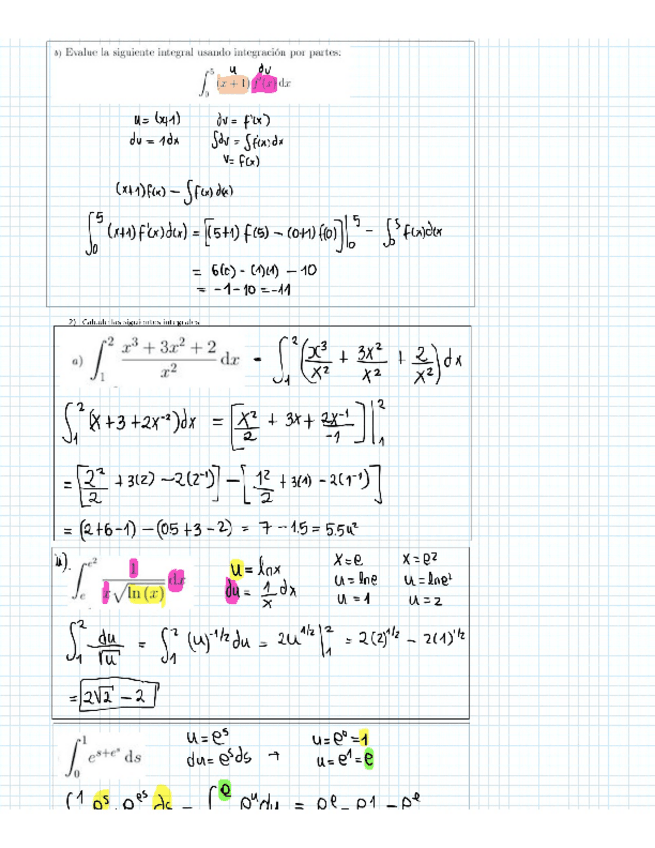 s) Evalue la siguiente integral usando integración por partes:
u dv
∫₀⁵ (x + 1) f'(x) dx
u = (x+1) dv = f'(x)
du = 1dx ∫dv = ∫f'(x)dx
v = f(x)
(x+1) f(x) − ∫f(x) d(x)
∫₀⁵ (x+1) f'(x)d(x) = [(5+1) f(5) − (0+1) f(0)]|₀⁵ − ∫₀⁵ f(x)d(x)
= 6(0) - (1)(1) - 10
= -1 - 10 = -11
2) Calcule las siguientes integrales
a) ∫₁² (x³ + 3x² + 2)/x² dx = ∫₁² (x³/x² + 3x²/x² + 2/x²) dx
∫₁² (x + 3 + 2x⁻²)dx = [x²/2 + 3x + 2x⁻¹/-1]|₁²
= [2²/2 + 3(2) − 2(2⁻¹)] − [1²/2 + 3(1) − 2(1⁻¹)]
= (2+6-1) − (05+3−2) = 7 − 1.5 = 5.5u²
∫ₑ^e² 1/(x√ln (x)) dx u = lnx x=e x=e²
du = 1/x dx u = lne u = lne²
u = 1 u = 2
∫₁² du/√u = ∫₁² (u)^-1/2 du = 2u^1/2 |₁² = 2(2)^1/2 − 2(1)^1/2
= 2√2 − 2
∫₀¹ e^s+e^s ds u = e^s u = e⁰ = 1
du = e^s ds → u = e¹ = e